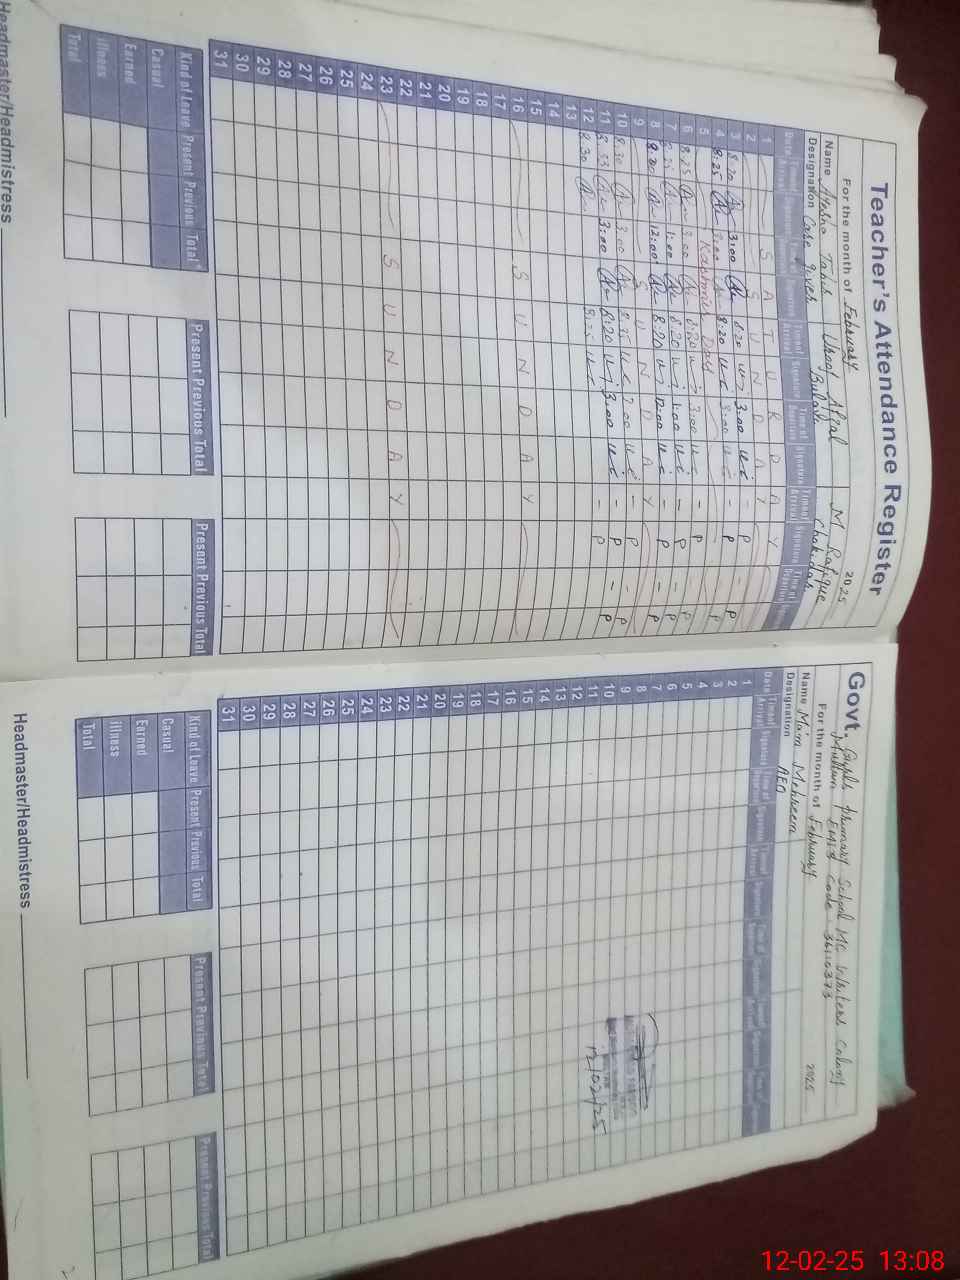 Teacher's Attendance Register
For the month of February 2025
Name Ayesha Tahir Uroof Afzal M Rafique
Designation Care giver Chokidar
Date Time of Arrival Signature Time of Departure Signature Time of Arrival Signature Time of Departure Signature Time of Arrival Signature Time of Departure Signature
1 S A T U R D A Y
2 S U N D A Y
3 8:20 3:00 8:20 3:00 - P - P
4 8:25 3:00 8:20 3:00 - P - P
5 Kashmir Day
6 8:25 3:00 8:20 3:00 - P - P
7 8:25 1:00 8:20 1:00 - P - P
8 8:20 12:00 8:20 12:00 - P - P
9 S U N D A Y
10 8:30 3:00 8:25 3:00 - P - P
11 8:23 3:00 8:20 3:00 - P - P
12 8:30 8:25
13
14
15
16 S U N D A Y
17
18
19
20
21
22
23 S U N D A Y
24
25
26
27
28
29
30
31
Kind of Leave Present Previous Total Present Previous Total Present Previous Total
Casual
Earned
illness
Total
Headmaster/Headmistress
Govt. Girls Primary School MC Writers Colony
Multan EMIS Code 36110373
For the month of February 2025
Name Mam Mehreen
Designation AEO
Date Time of Arrival Signature Time of Departure Signature Time of Arrival Signature Time of Departure Signature Time of Arrival Signature Time of Departure Signature
1
2
3
4
5
6
7
8
9
10
11 12/02/25
12
13
14
15
16
17
18
19
20
21
22
23
24
25
26
27
28
29
30
31
Kind of Leave Present Previous Total Present Previous Total Present Previous Total
Casual
Earned
illness
Total
Headmaster/Headmistress
12-02-25 13:08